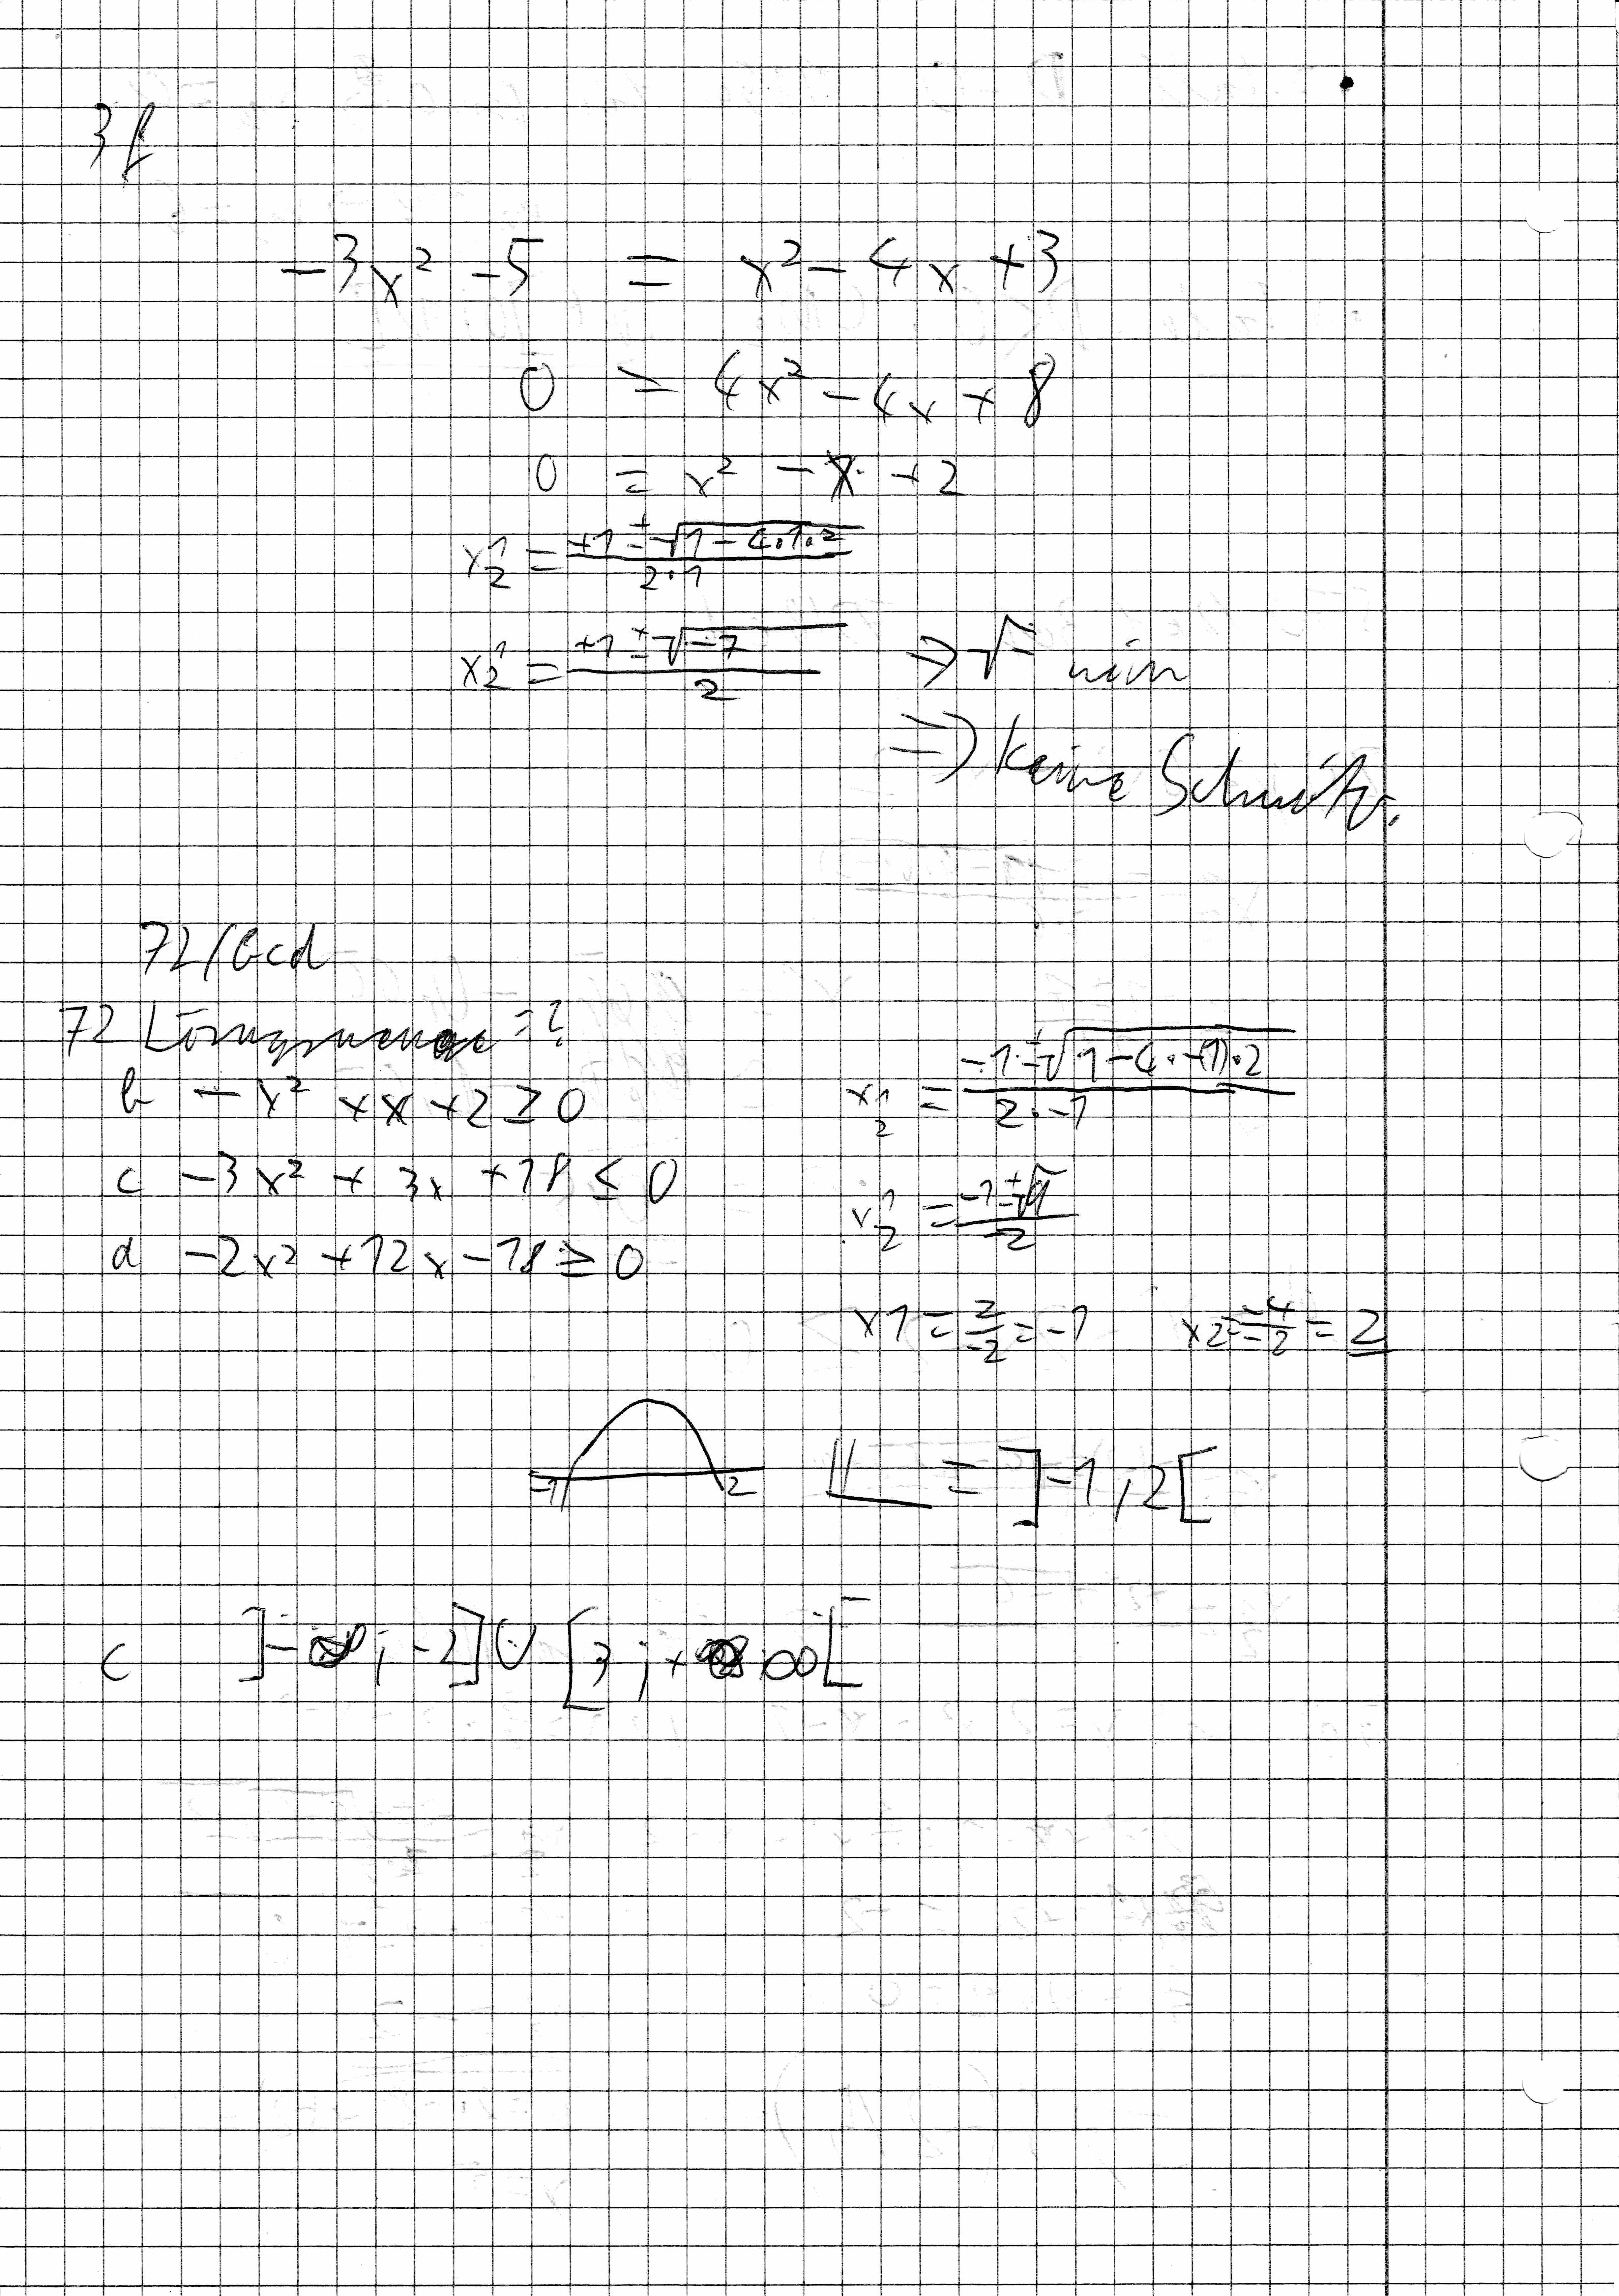 3f
-3x² -5 = x² - 4x + 3
0 = 4x² - 4x + 8
0 = x² - x + 2
x1/2 = (+1 ± √(1 - 4·1·2)) / (2·1)
x1/2 = (+1 ± √(-7)) / 2 ⇒ √-
⇒ keine Schnittp.
12/bcd
12 Lösungsmenge = ?
b -x² + x + 2 ≥ 0
c -3x² + 3x + 18 ≤ 0
d -2x² + 12x - 18 ≥ 0
x1/2 = (-1 ± √(1 - 4·-(1)·2)) / (2·-1)
x1/2 = (-1 ± √9) / -2
x1 = 2/-2 = -1 x2 = -4/-2 = 2
-1 2 𝕃 = ]-1, 2[
c ]-∞; -2] ∪ [3; +∞[